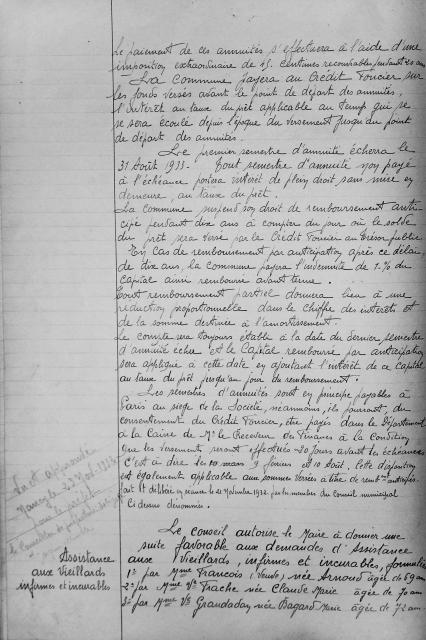 Le paiement de ces annuités s'effectuera à l'aide d'une
imposition extraordinaire de 15 centimes recouvrables pendant
La Commune payera au Crédit Foncier sur
les fonds versés avant le point de départ des annuités,
l'intérêt au taux du prêt applicable au temps qui se
se sera écoulé depuis l'époque du versement jusqu'au point
de départ des annuités.
Le premier semestre d'annuité écherra le
31 Août 1933. Tout semestre d'annuité non payé
à l'échéance portera intérêt de plein droit sans mise en
demeure, au taux du prêt.
La Commune suspend son droit de remboursement anti
cipé pendant dix ans à compter du jour où le solde
du prêt sera versé par le Crédit Foncier au Trésor public
En cas de remboursement par anticipation après ce délai
de dix ans, la Commune payera l'indemnité de 1% du
Capital ainsi remboursé avant terme.
Tout remboursement partiel donnera lieu à une
réduction proportionnelle dans le chiffre des intérêts et
de la somme destinée à l'amortissement.
Le compte sera toujours établi à la date du dernier semestre
d'annuité échue et le Capital remboursé par anticipation
sera appliqué à cette date en ajoutant l'intérêt de ce Capital
au taux du prêt jusqu'au jour du remboursement.
Les semestres d'annuités sont en principe payables à
Paris au siège de la Société, néanmoins, ils pourront, du
consentement du Crédit Foncier, être payés dans le Département
à la Caisse de Mr le Receveur des Finances à la Condition
que les versements seront effectués 20 jours avant les échéances
C'est à dire les février et 10 Août. Cette disposition
est également applicable aux sommes versées à titre de
fait et délibéré en séance le 21 Novembre 1932 par les membres du Conseil municipal
Ci dessus dénommés.
Vu et approuvé
Nancy, le 23 Nov. 1932
Pour le préfet
Assistance
aux Vieillards
infirmes et incurables
Le Conseil autorise le Maire à donner une
suite favorable aux demandes d'Assistance
aux Vieillards, infirmes et incurables, formulées
1° par Mme François (Veuve), née Arnould âgée de 69 ans
2° par Mme Vve Trache née Claude Marie âgée de 70 ans
3° par Mme Vve Grandaday née Bagard Marie âgée de 72 ans.